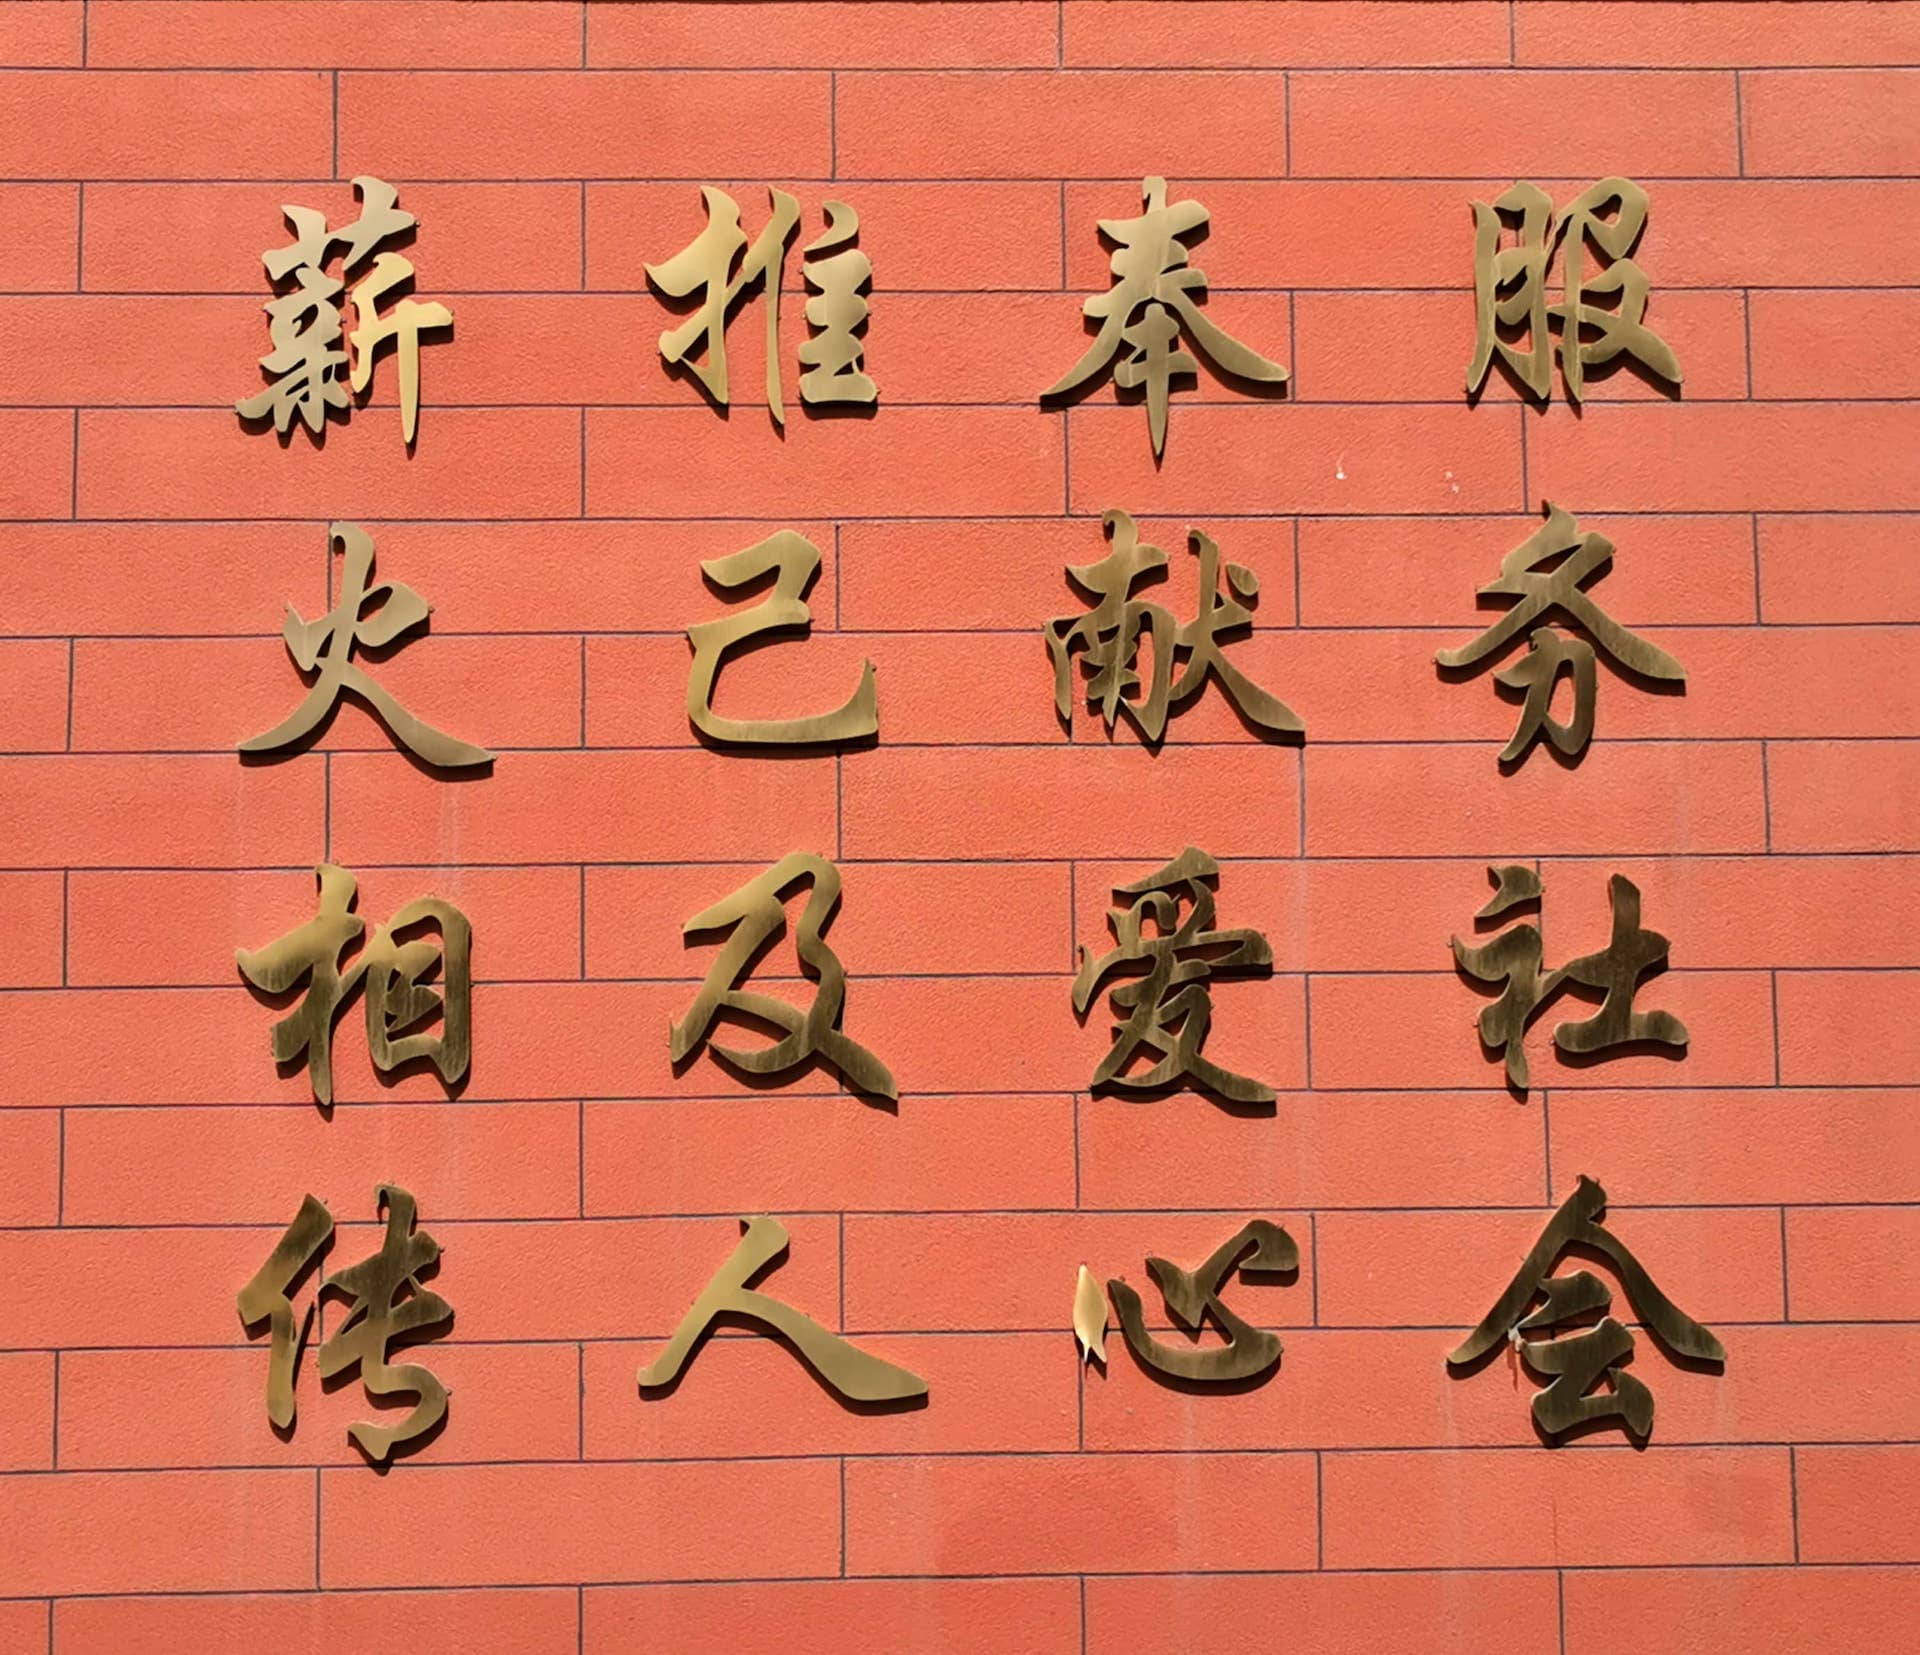 服务社会
奉献爱心
推己及人
薪火相传